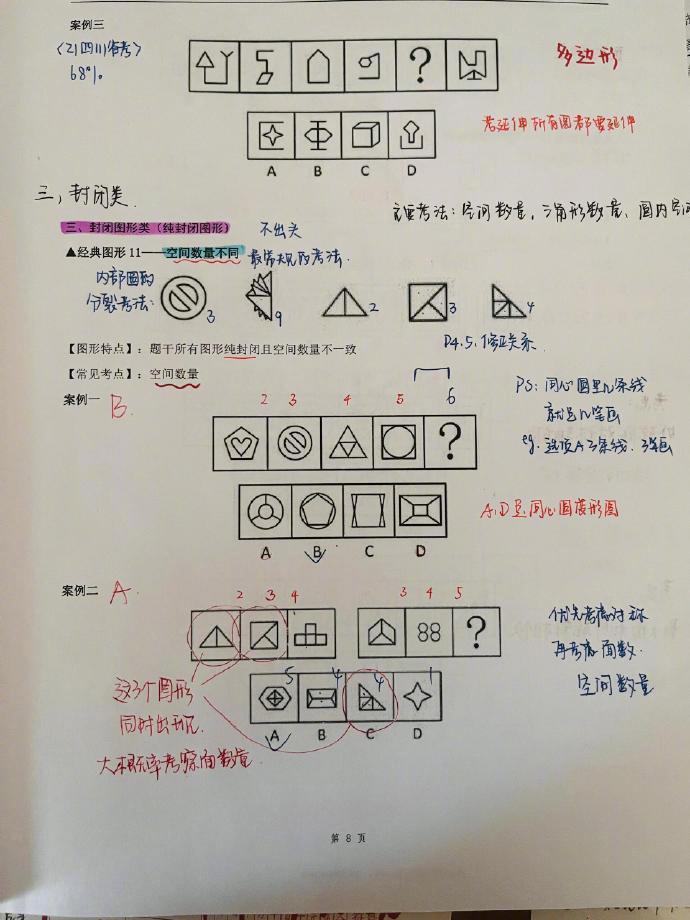 案例三
<21四川省考>
68%
多边形
考延伸所有图都要延伸
A B C D
三、封闭类.
主要考法：空间数量，三角形数量、图内空间
三、封闭图形类（纯封闭图形）
不出头
▲经典图形 11——空间数量不同
最常见的考法.
内部图的
分裂考法：
3 9 2 3 4
【图形特点】：题干所有图形纯封闭且空间数量不一致
P4.5.修正关系.
【常见考点】：空间数量
案例一
B
2 3 4 5 6
PS：同心圆里几条线
就是几笔画
eg.选项A 3条线.3笔画
A B C D
A.D是同心圆变形图
案例二
A
2 3 4 3 4 5
88
优先考虑对称
再考虑面数.
空间数量
5 4 4 1
A B C D
这3个图形
同时出现.
大概率考察面数量.
第 8 页